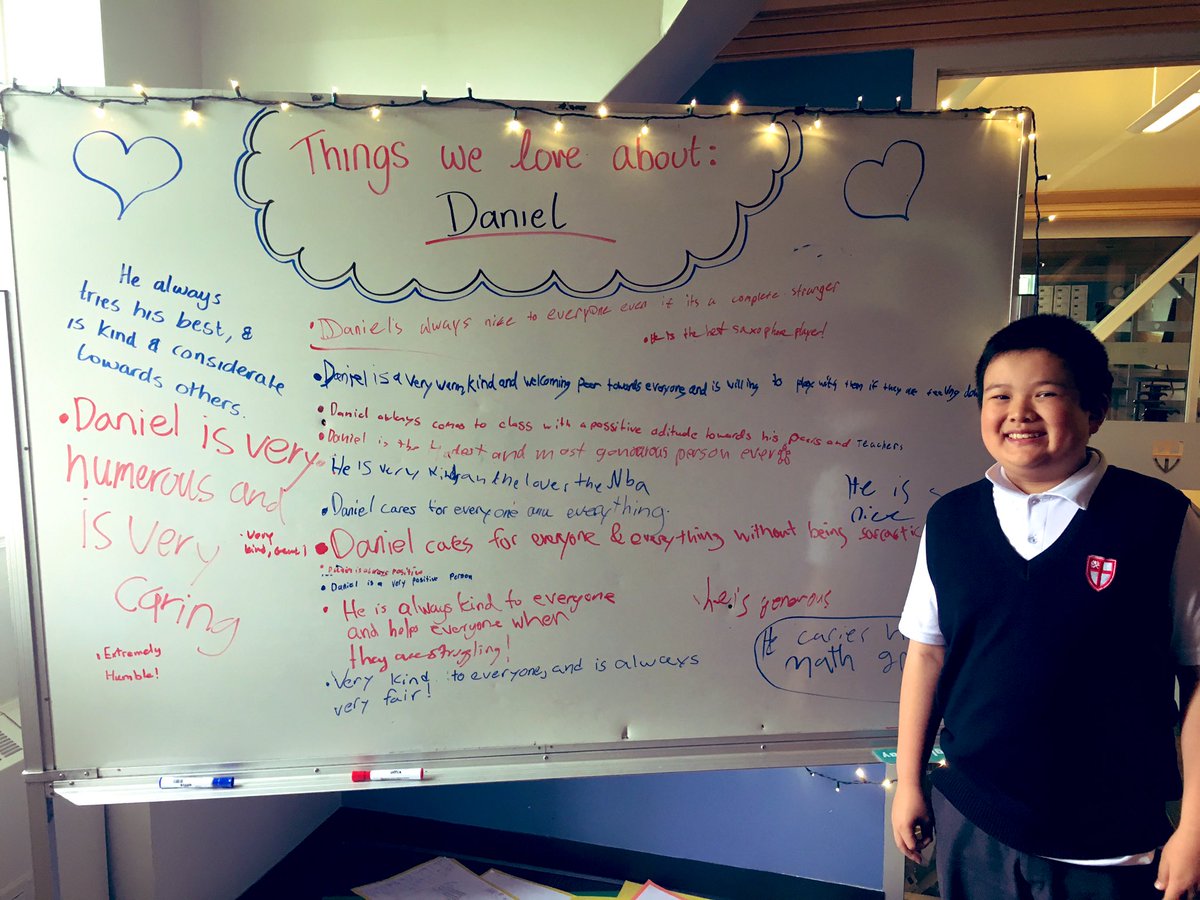 Things we love about:
Daniel
He always
tries his best, &
is kind & considerate
towards others.
• Daniel's always nice to everyone even if its a complete stranger
• He is the best saxophone player!
• Daniel is a very warm, kind and welcoming peer towards everyone and is willing to play with them if they are feeling down
• Daniel always comes to class with a possitive aditude towards his peers and Teachers
• Daniel is the and most genourous person ever
• Daniel is very
humerous and
is very
caring
• very
kind,
He is very kind an the lover the Nba
• Daniel cares for everyone and everything.
• Daniel cares for everyone & everything without being sarcastic
• Daniel is always positive
• Daniel is a very positive person
He is
nice
• He is always kind to everyone
and helps everyone when
they are struggling!
he's generous
• Extremely
Humble!
• Very kind to everyone, and is always
very fair!
He caries
math